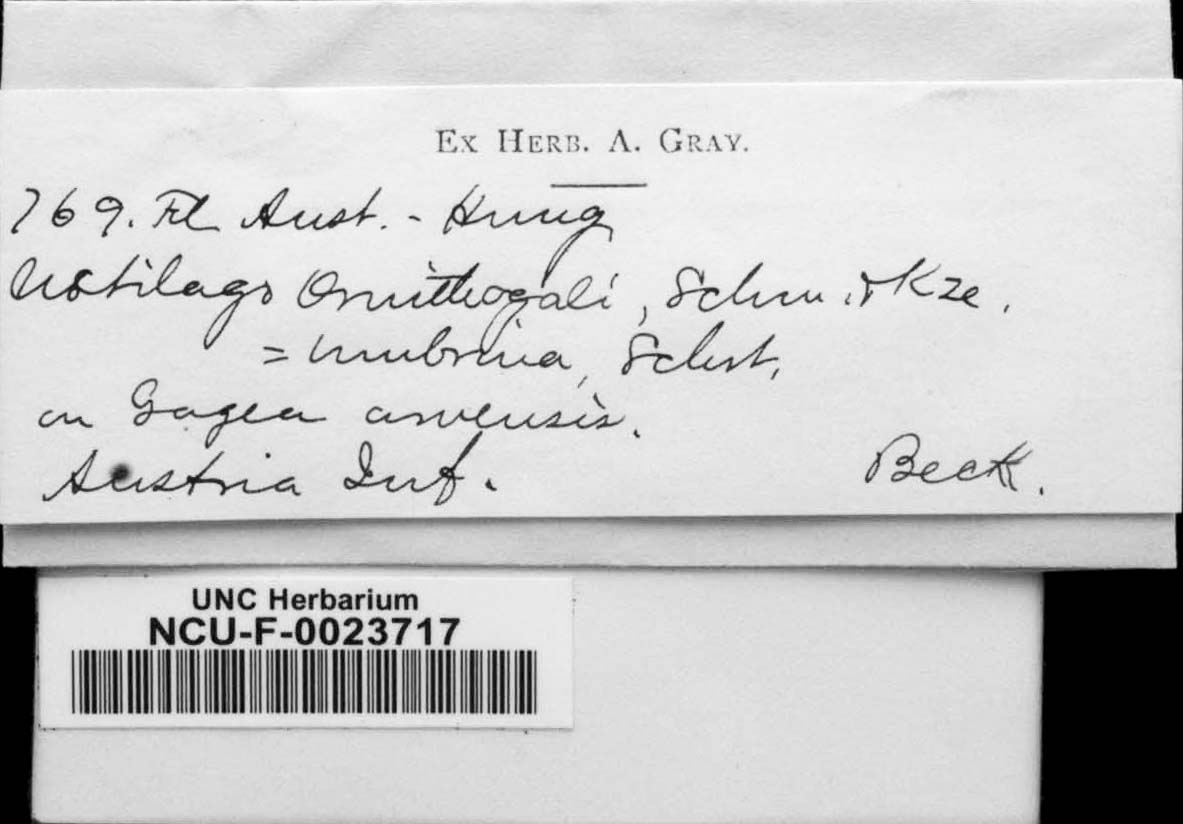 Ex Herb. A. Gray.
769. Fl Aust. - Hung
Ustilago Ornithogali, Schm. & Kze.
= umbrina, Schrt,
on Gagea arvensis.
Austria Inf.
Beck.
UNC Herbarium
NCU-F-0023717